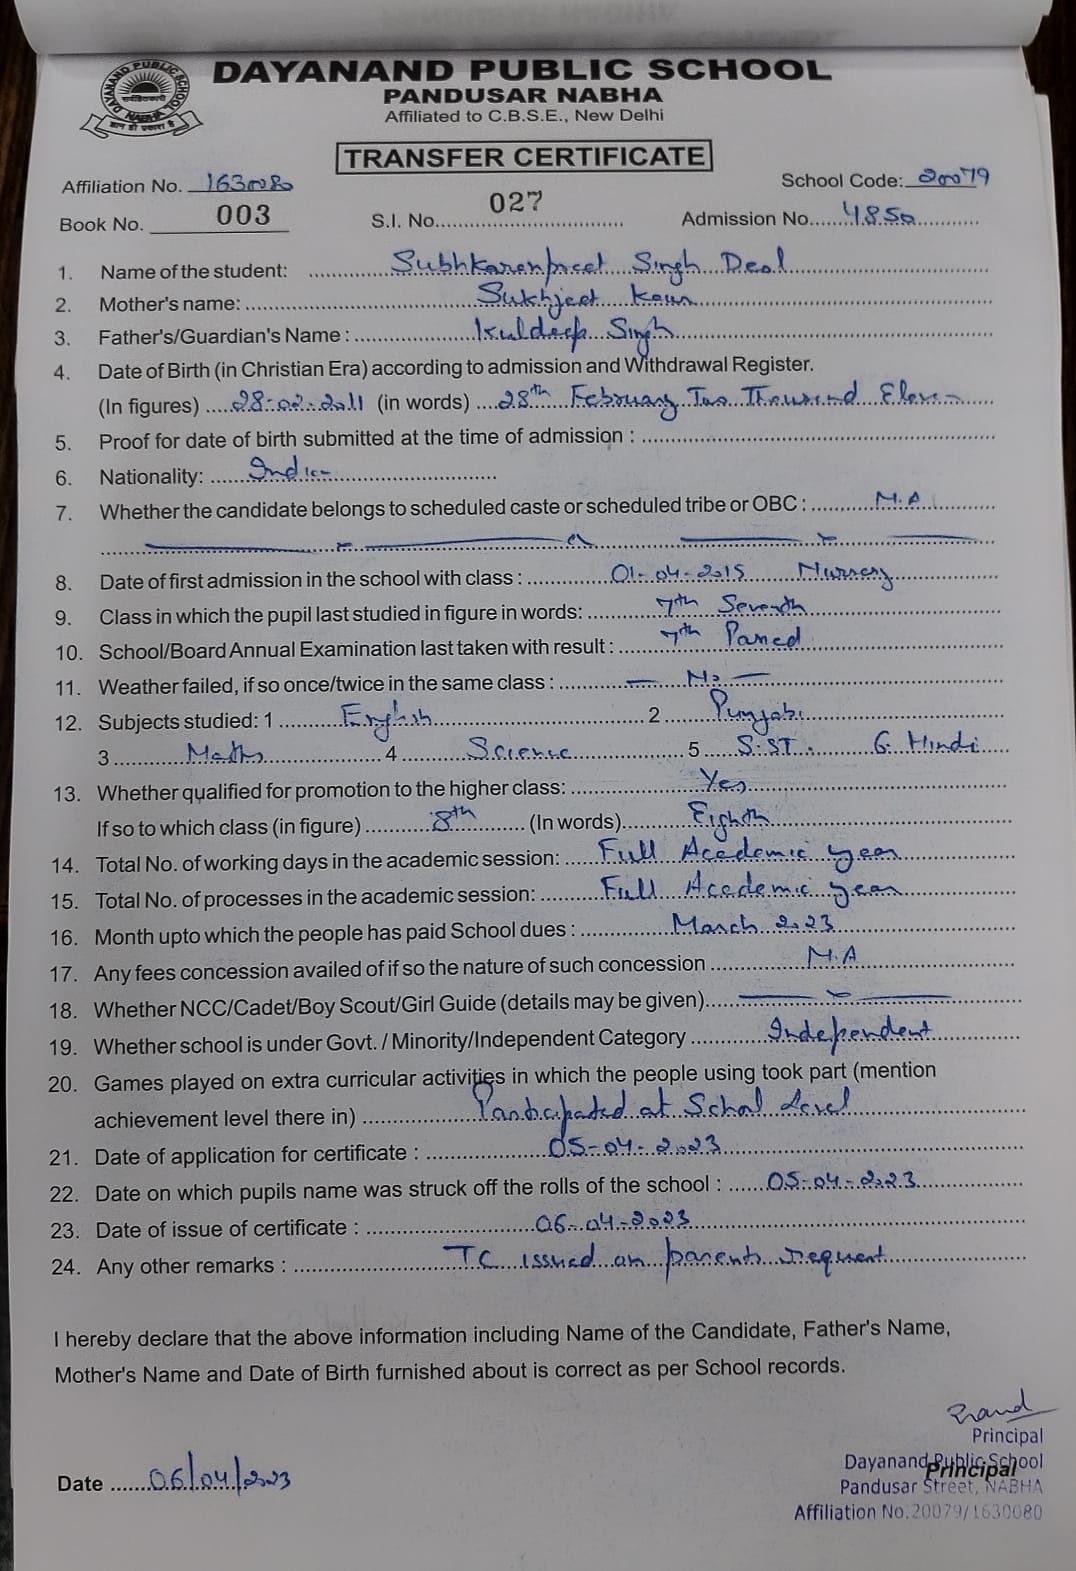 DAYANAND PUBLIC SCHOOL
PANDUSAR NABHA
Affiliated to C.B.S.E., New Delhi
TRANSFER CERTIFICATE
Affiliation No. 1630080 School Code: 20079
Book No. 003 S.I. No. 027 Admission No. 4850
1. Name of the student: Subhkaranpreet Singh Deol
2. Mother's name: Sukhjeet Kaur
3. Father's/Guardian's Name : Kuldeep Singh
4. Date of Birth (in Christian Era) according to admission and Withdrawal Register.
(In figures) 28-02-2011 (in words) 28th February Two Thousand Eleven
5. Proof for date of birth submitted at the time of admission :
6. Nationality: Indian
7. Whether the candidate belongs to scheduled caste or scheduled tribe or OBC : N.A
8. Date of first admission in the school with class : 01-04-2015 Nursery
9. Class in which the pupil last studied in figure in words: 7th Seventh
10. School/Board Annual Examination last taken with result : 7th Passed
11. Weather failed, if so once/twice in the same class : — No —
12. Subjects studied: 1 English 2 Punjabi
3 Maths 4 Science 5 S.ST. 6. Hindi
13. Whether qualified for promotion to the higher class: Yes
If so to which class (in figure) 8th (In words) Eighth
14. Total No. of working days in the academic session: Full Academic year
15. Total No. of processes in the academic session: Full Academic year
16. Month upto which the people has paid School dues : March 2023
17. Any fees concession availed of if so the nature of such concession N.A
18. Whether NCC/Cadet/Boy Scout/Girl Guide (details may be given)
19. Whether school is under Govt. / Minority/Independent Category Independent
20. Games played on extra curricular activities in which the people using took part (mention
achievement level there in) Participated at School Level
21. Date of application for certificate : 05-04-2023
22. Date on which pupils name was struck off the rolls of the school : 05-04-2023
23. Date of issue of certificate : 06-04-2023
24. Any other remarks : TC issued on parents request
I hereby declare that the above information including Name of the Candidate, Father's Name,
Mother's Name and Date of Birth furnished about is correct as per School records.
Principal
Dayanand Public School
Principal
Pandusar Street, NABHA
Affiliation No.20079/1630080
Date 06/04/2023